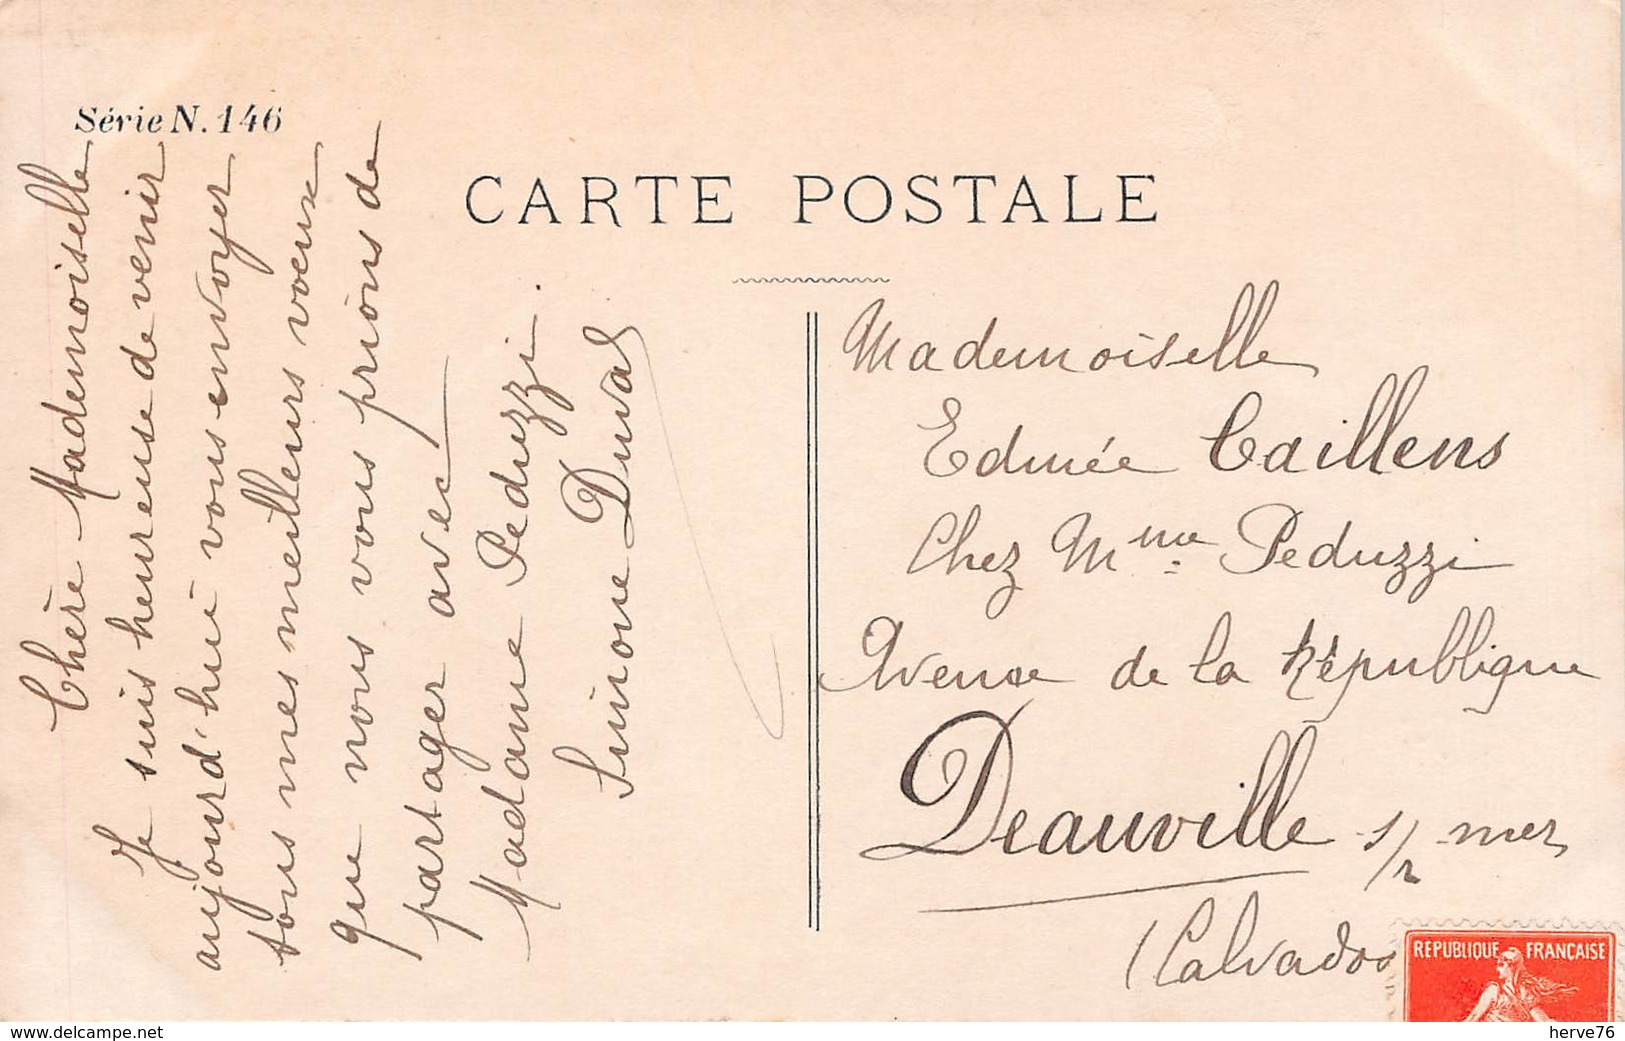 Série N. 146
CARTE POSTALE
Chère Mademoiselle
Je suis heureuse de venir
aujourd'hui vous envoyer
tous mes meilleurs voeux
que nous vous prions de
partager avec
Madame Peduzzi.
Simone Duval
Mademoiselle
Edmée Caillens
Chez Mme Peduzzi
Avenue de la République
Deauville s/r mer
(Calvados
REPUBLIQUE FRANÇAISE
www.delcampe.net
herve76